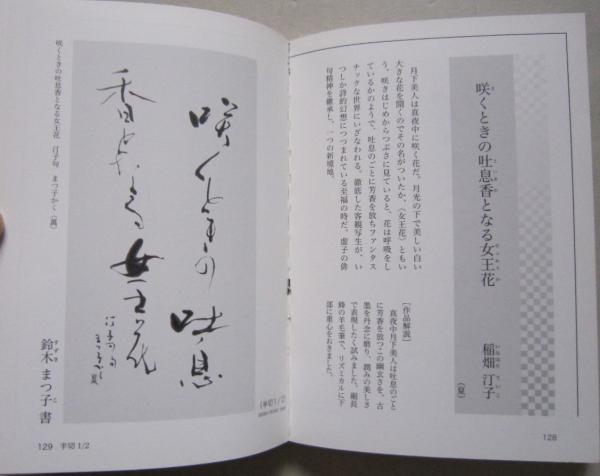 咲くときの吐息香となる女王花
稲畑 汀子
いなはた ていこ
(夏)
月下美人は真夜中に咲く花だ。月光の下で美しい白い
大きな花を開くのでその名がついたか、〈女王花〉ともい
う。咲きはじめからつぶさに見ていると、花は呼吸をし
ているかのようで、吐息のごとに芳香を放ちファンタス
チックな世界にいざなわれる。徹底した客観写生が、い
つしか詩的幻想につつまれている至福の時だ。虚子の俳
句精神を継承し、一つの新境地。
[作品解説]
真夜中月下美人は吐息のごと
に芳香を放つこの幽玄さを、古
墨を丹念に磨り、潤みの美しさ
で表現したく試みました。細長
鋒の羊毛筆で、リズミカルに下
部に重心をおきました。
128
(半切1/2)
咲くときの吐息
香となる女王花
汀子句
まつ子かく
咲くときの吐息香となる女王花 汀子句 まつ子かく(風)
鈴木 まつ子 書
すずき こ
129 半切1/2